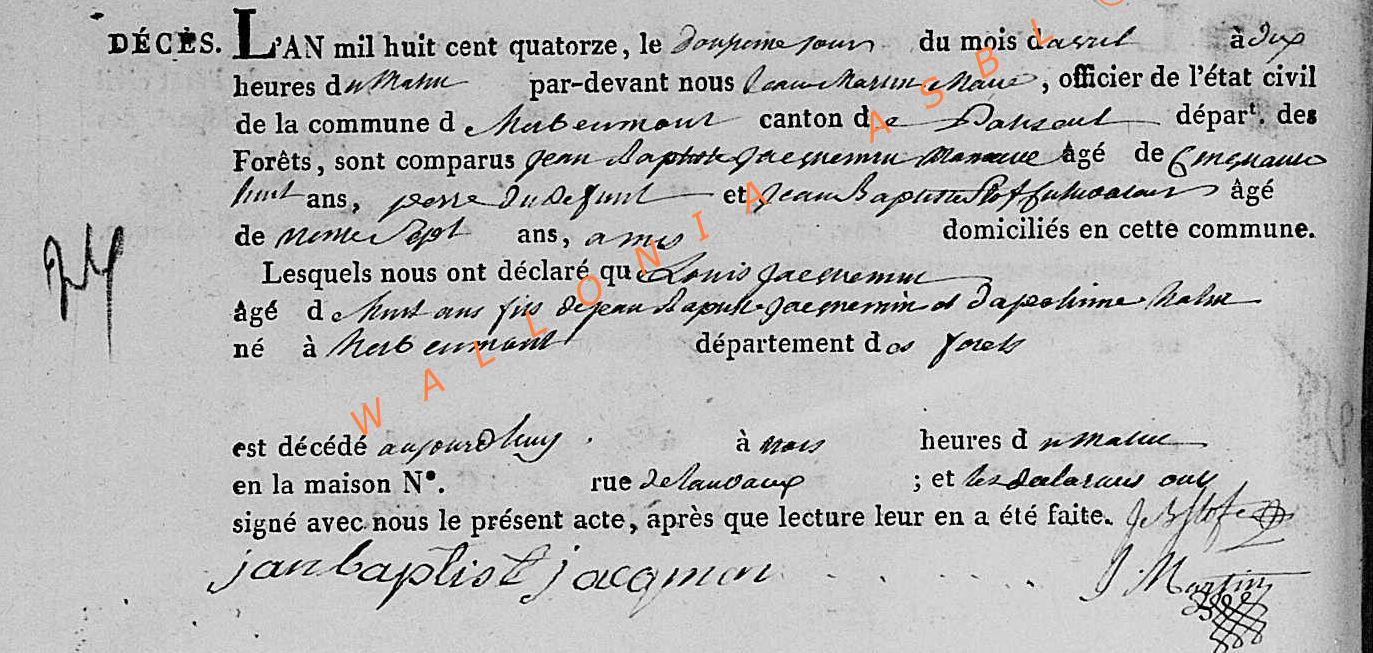 DÉCÈS. L'AN mil huit cent quatorze, le douzieme jour du mois d'avril à dix
heures du Matin par-devant nous Jean Martin Maire, officier de l'état civil
de la commune d herbeumont canton de Paliseul dépar^t. des
Forêts, sont comparus Jean Baptiste Jacquemin âgé de Cinquante
huit ans, perre du defunt et Jean Baptiste âgé
de Sept ans, amis domiciliés en cette commune.
Lesquels nous ont déclaré que Louis Jacquemin
âgé de huit ans fils de jean Baptiste Jacquemin et d'apoline
né à herbeumont département des forets
est décédé aujourdhuy. à trois heures du matin
en la maison N°. rue ; et les declarans ont
signé avec nous le présent acte, après que lecture leur en a été faite.
janbaptist jacqmin J Martin
WALLONIA ASBL